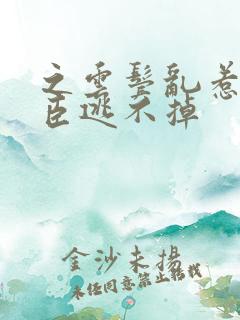 之云鬓乱惹
臣逃不掉
金沙未揚
未经同意禁止转载